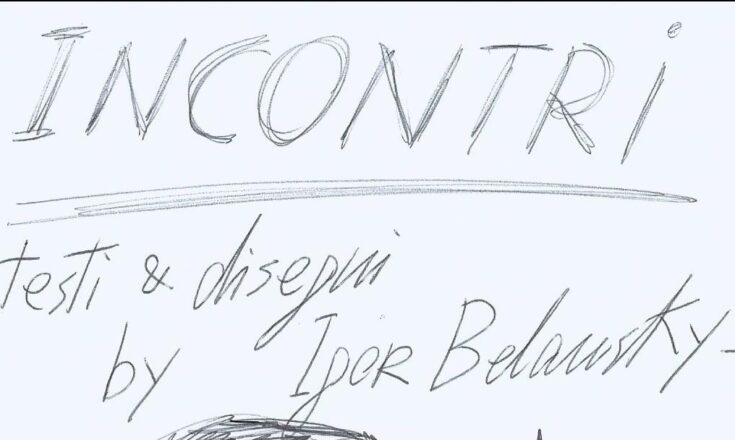 INCONTRi
testi & disegni
by Igor Belansky